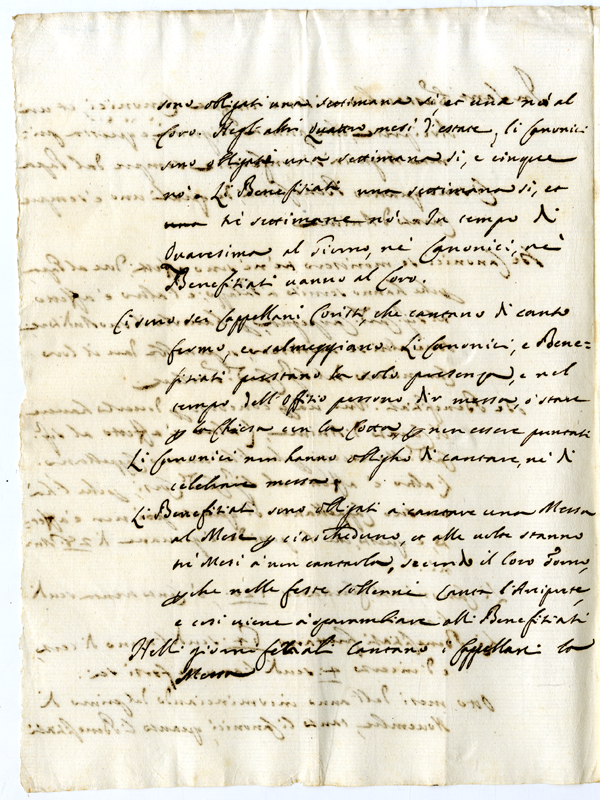 sono obligati una settimana si, et una nò al
Coro. Negl'altri quattro mesi d'estate, li Canonici
sono obligati una settimana si, e cinque
nò. Li Benefitiati una settimana si, et
una trè settimane nò. In tempo di
Quaresima al Giorno, nè Canonici, nè
Benefitiati vanno al Coro.
Ci sono sei Cappellani Coristi, che cantano di canto
fermo, e salmeggiano. Li Canonici, e Bene=
fitiati prestano la solo presenza, e nel
tempo dell'Offitio possono dir messa, ò stare
p la Chiesa con la Cotta, p non essere puntati
Li Canonici non hanno obligho di cantare, nè di
celebrare messa.
Li Benefitiati sono obligati à cantare una Messa
al Mese p ciascheduno, et alle volte stanno
trè Mesi à non cantarla, secondo il loro
pche nelle feste sollenni Canta l'Arciprete,
e così viene à sparambiare alli Benefitiati
Nelli giorni feriali Cantano i Cappellani la
Messa